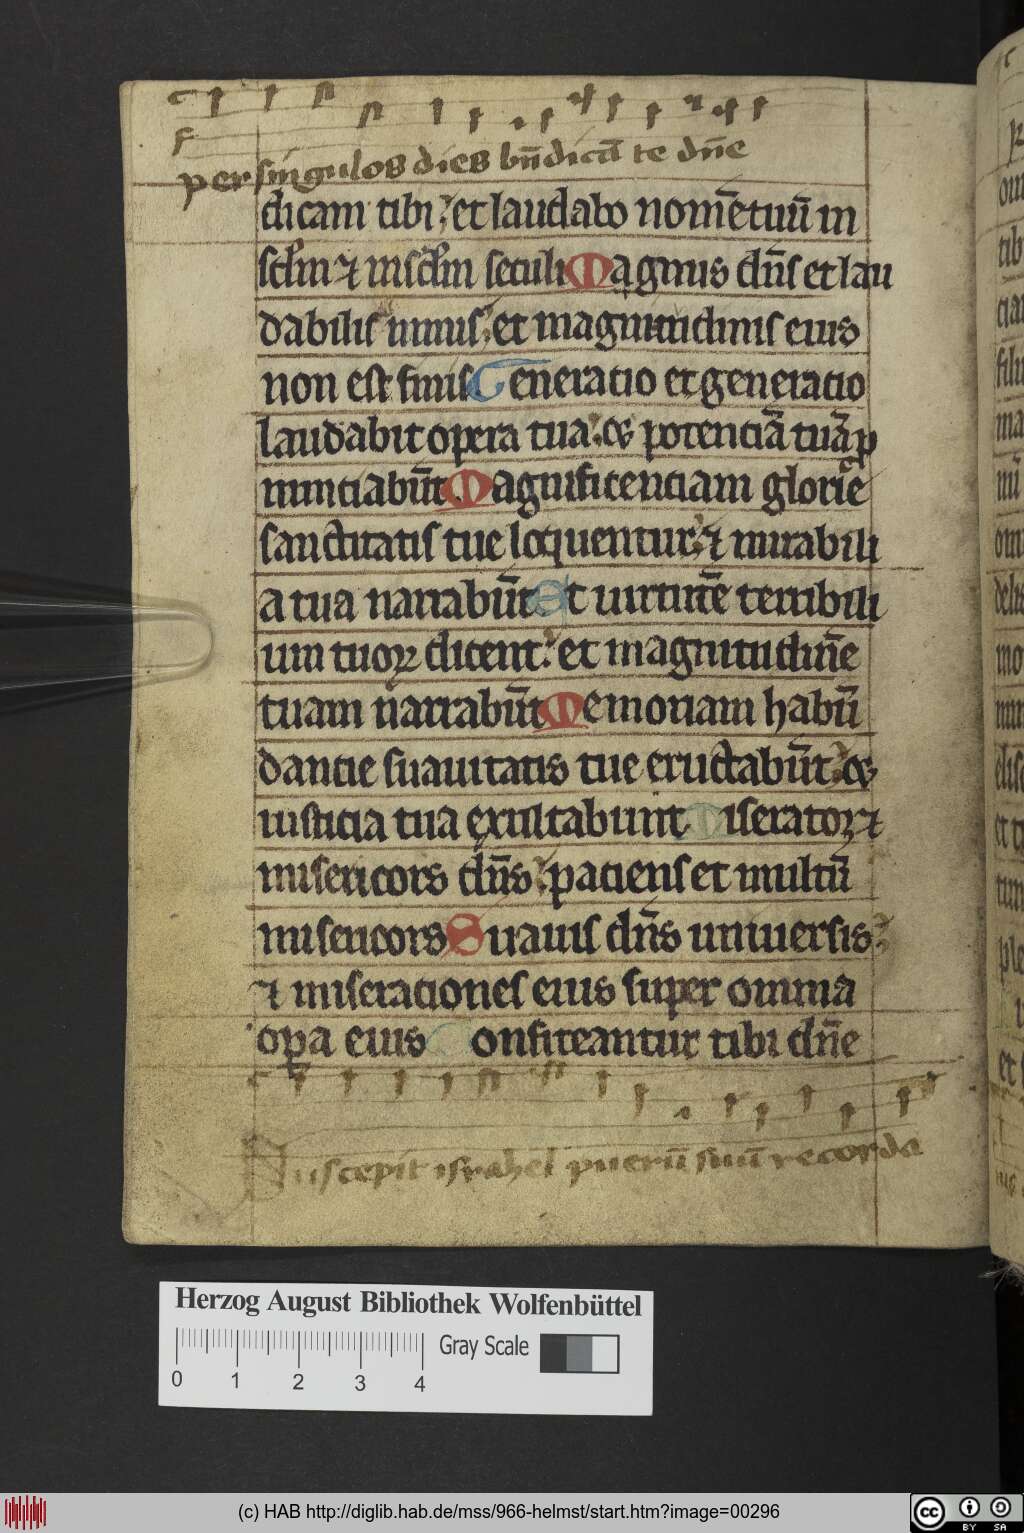 per singulos dies bn̄dicā te dn̄e
dicam tibi et laudabo nomē tuū in
sclm̄ ⁊ in sclm̄ seculi Magnus dn̄s et lau
dabilis nimis et magnitudinis eius
non est finis Generatio et generatio
laudabit opera tua ⁊ potenciā tuā p
nunciabūt Magnificenciam glorie
sanctitatis tue loquentur ⁊ mirabili
a tua narrabūt Et uirtutē terribili
um tuoꝝ dicent et magnitudinē
tuam narrabūt Memoriam habū
dancie suauitatis tue eructabūt ⁊
iusticia tua exultabunt Miserator ⁊
misericors dn̄s paciens et multū
misericors Suauis dn̄s uniuersis
⁊ miserationes eius super omnia
oꝑa eius Confiteantur tibi dn̄e
Suscepit israhel puerū suū recorda
Herzog August Bibliothek Wolfenbüttel
Gray Scale
0 1 2 3 4
(c) HAB http://diglib.hab.de/mss/966-helmst/start.htm?image=00296
cc BY SA